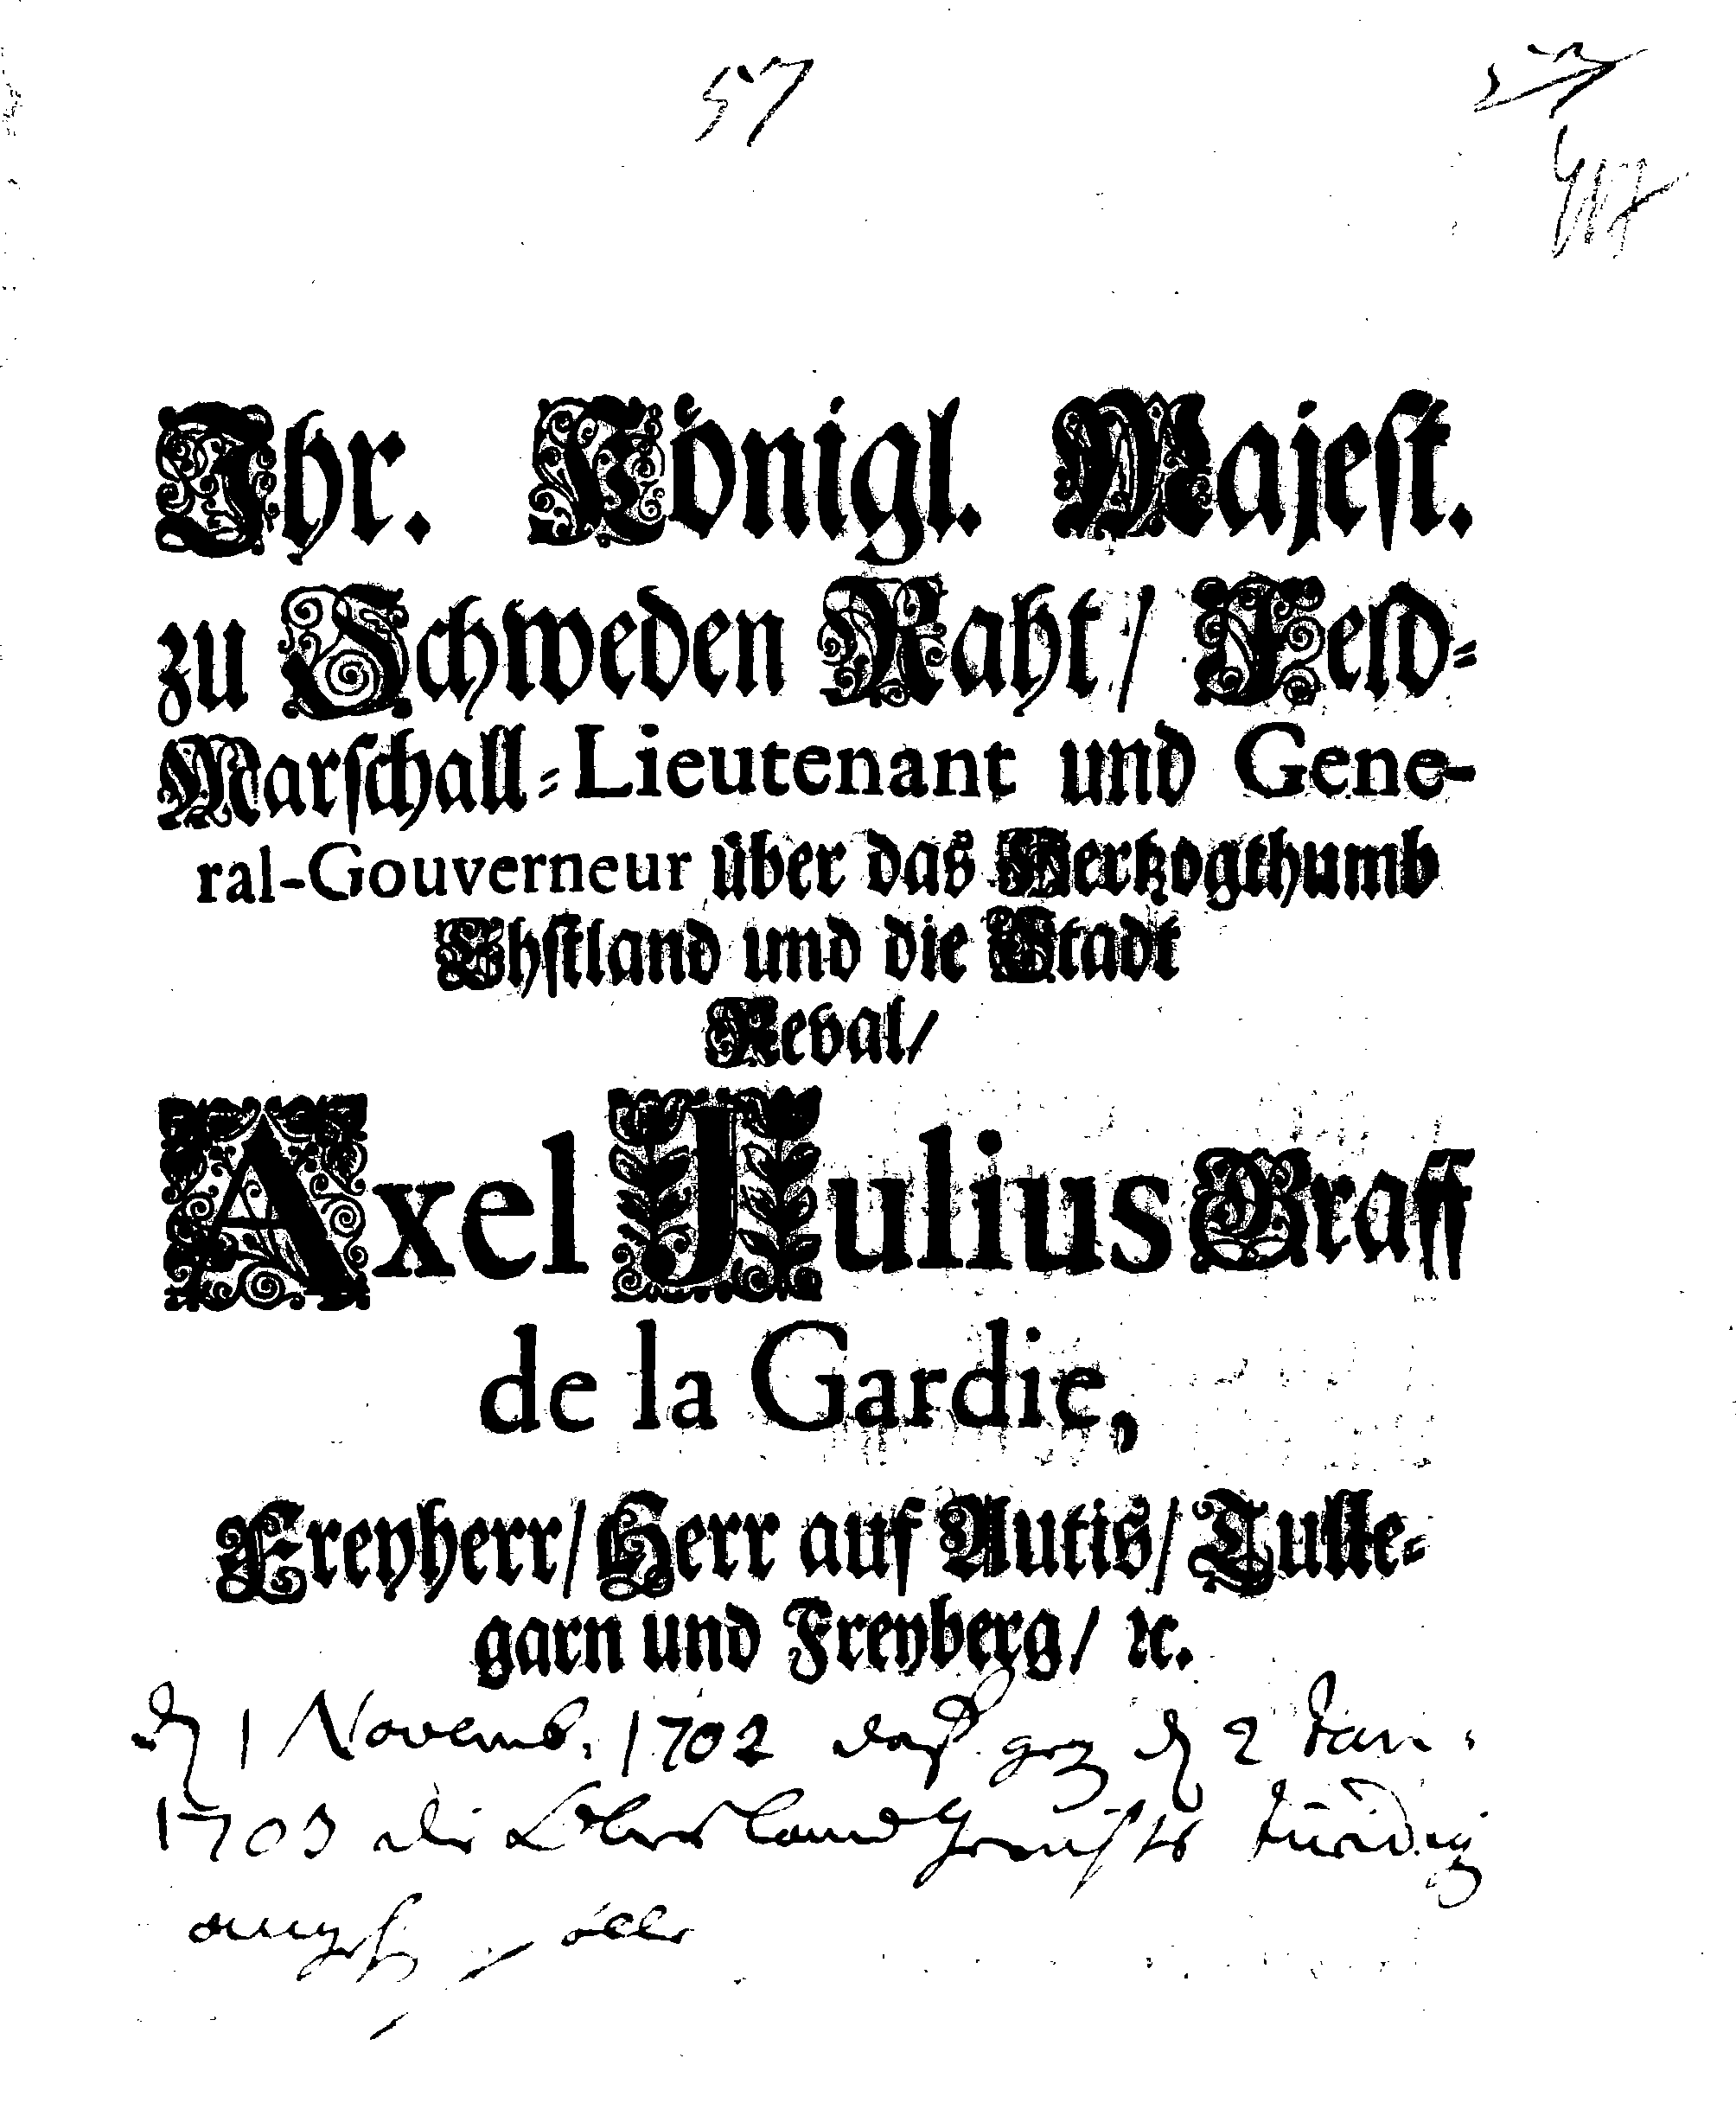 57
Ihr. Königl. Majest.
zu Schweden Raht/ Feld-
Marschall-Lieutenant und Gene-
ral-Gouverneur über das Hertzogthumb
Ehstland und die Stadt
Reval/
Axel Julius Graff
de la Gardie,
Freyherr/ Herr auf Autis/ Tulle-
garn und Freyberg/ ꝛc.
1 Novemb. 1702 daß 2 Jan.
1703